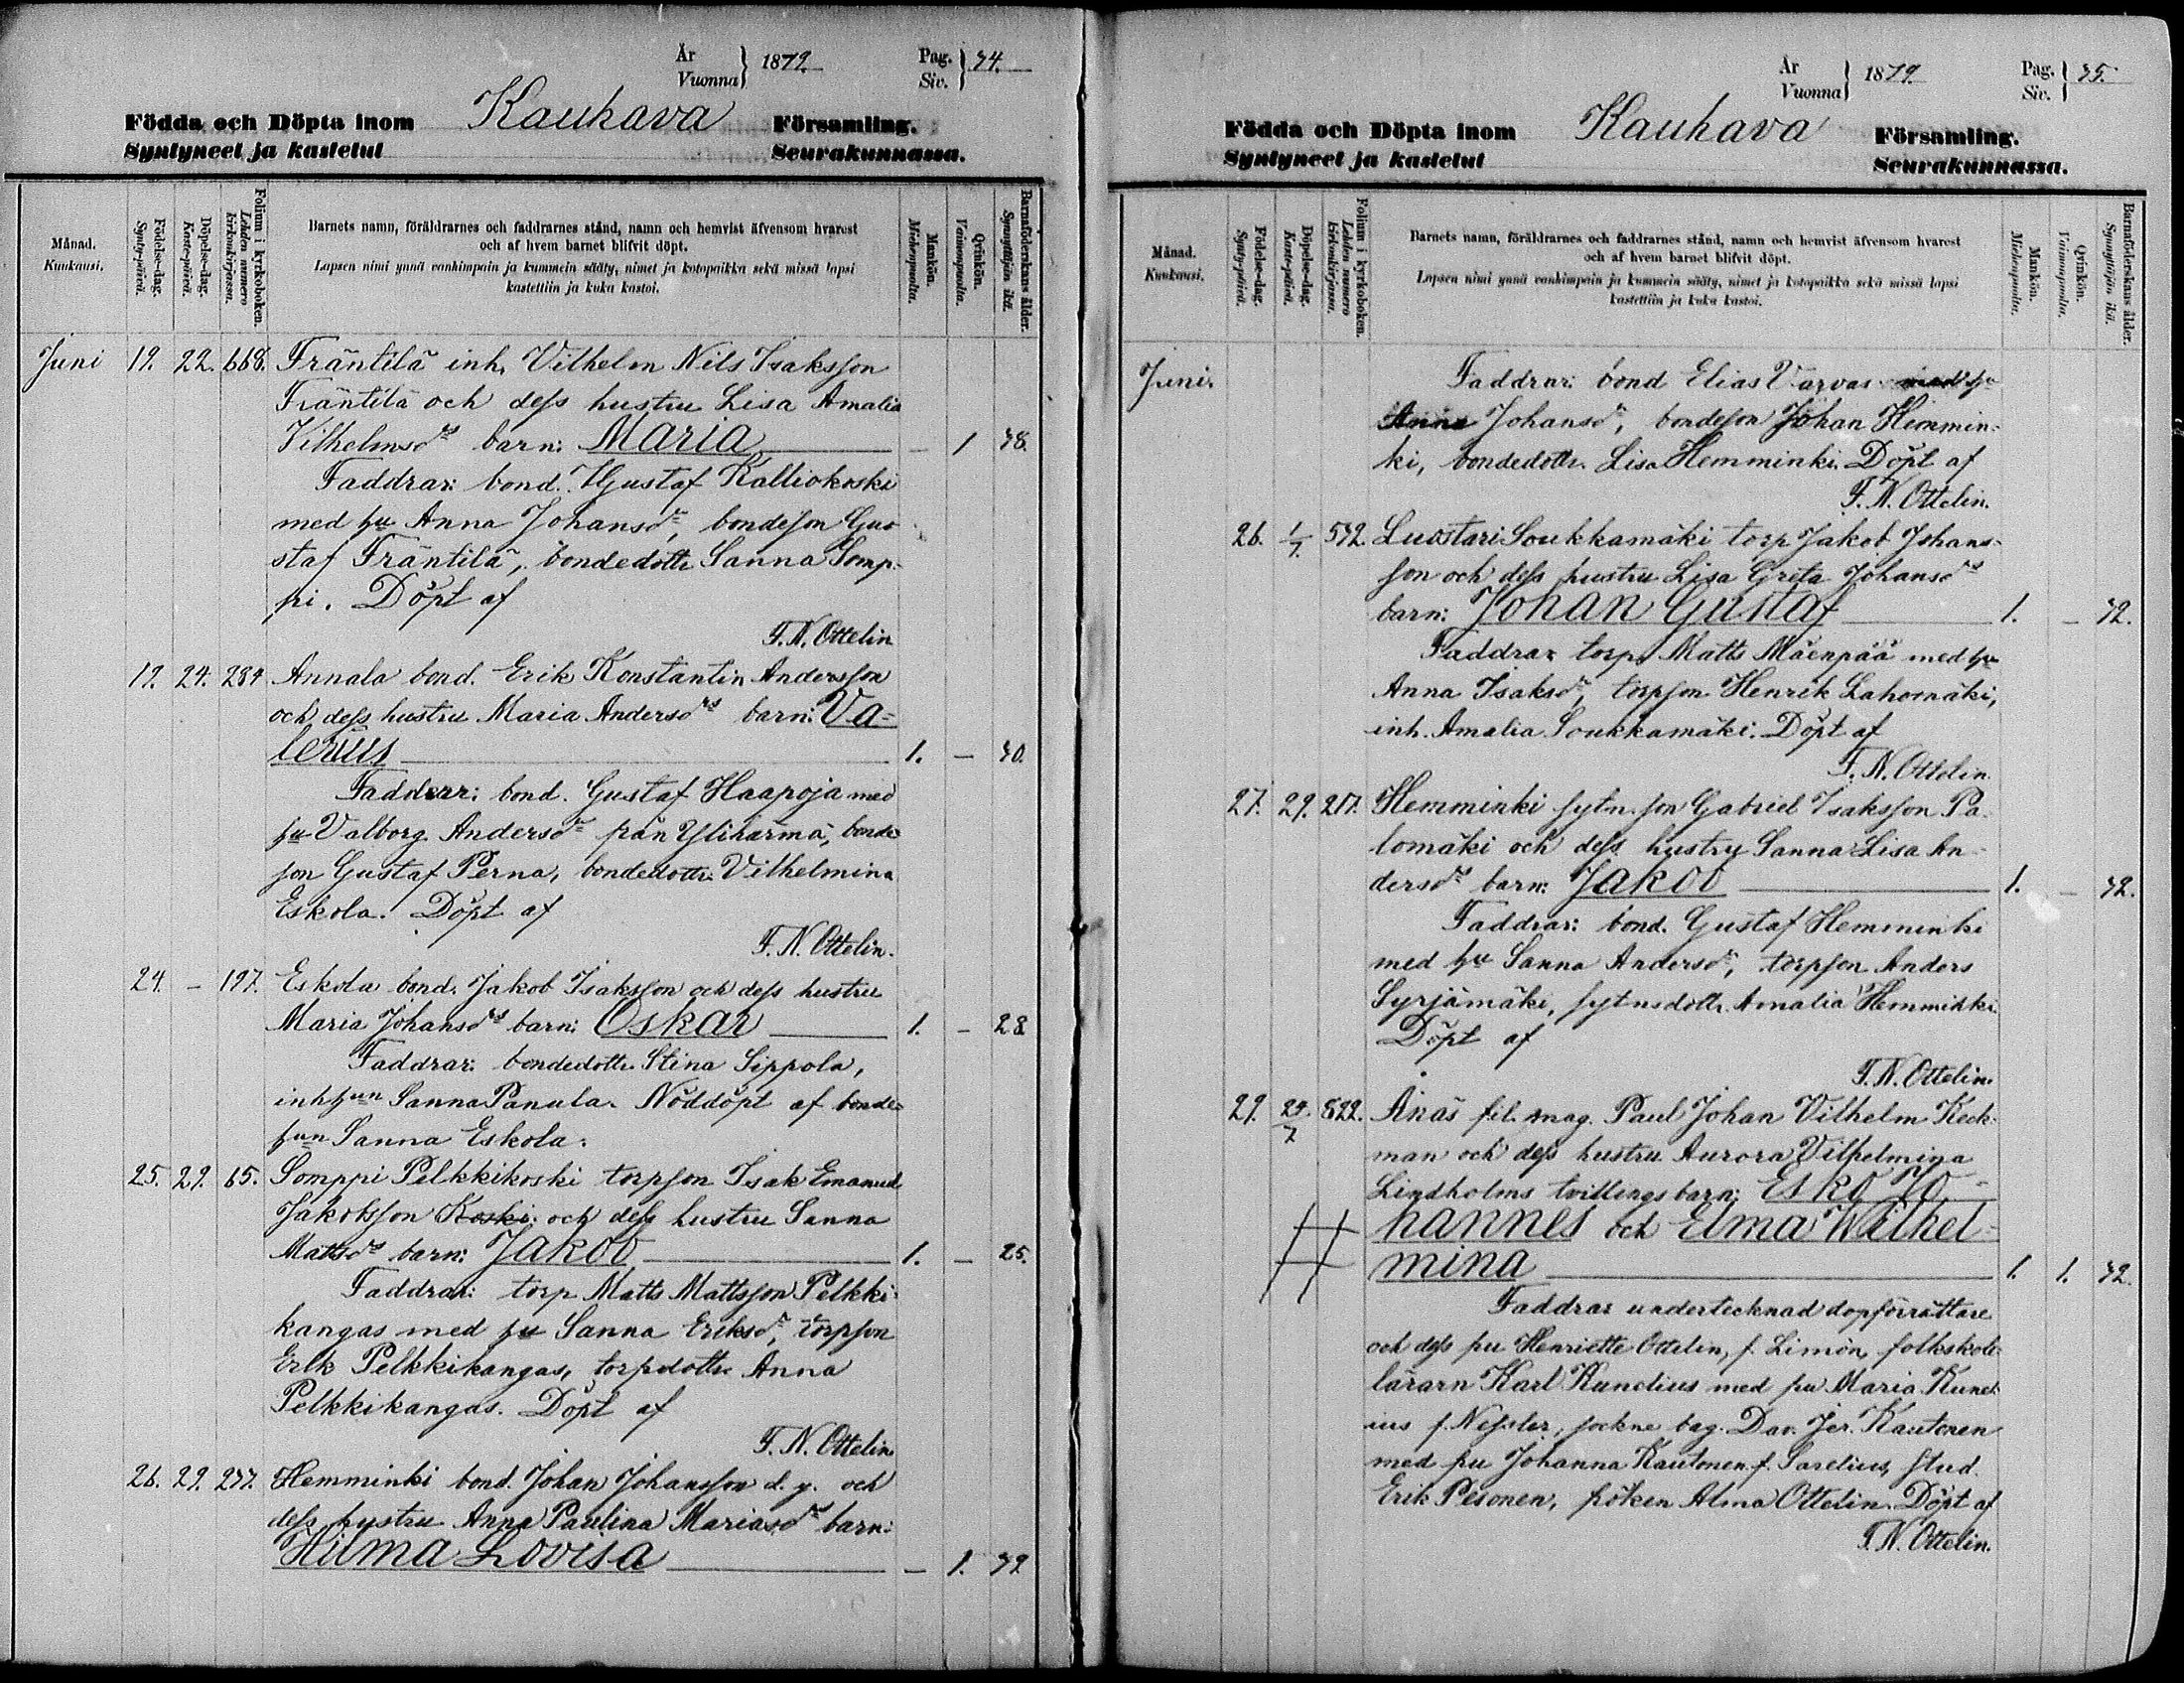 År
Vuonna } 1879.
Pag.
Siv. } 34.
Födda och Döpta inom Kauhava Församling.
Syntyneet ja kastetut Seurakunnassa.
Månad.
Kuukausi.
Födelse-dag.
Synty-päivä.
Döpelse-dag.
Kaste-päivä.
Folium i kyrkoboken.
Lehden numero
kirkonkirjassa.
Barnets namn, föräldrarnes och faddrarnes stånd, namn och hemvist äfvensom hvarest
och af hvem barnet blifvit döpt.
Lapsen nimi ynnä vanhimpain ja kummein sääty, nimet ja kotopaikka sekä missä lapsi
kastettiin ja kuka kastoi.
Mankön.
Miehenpuolta.
Qvinkön.
Vaimonpuolta.
Barnaföderskans ålder.
Synnyttäjän ikä.
Juni 19. 22. 668. Fräntilä inh. Vilhelm Nils Isaksson
Fräntilä och dess hustru Lisa Amalia
Vilhelmsdrs barn: Maria — 1 38.
Faddrar: bond. Gustaf Kalliokoski
med hu Anna Johansdr, bondeson Gu-
staf Fräntilä, bondedottr Sanna Somp-
pi. Döpt af
F. N. Ottelin
19. 24. 284 Annala bond. Erik Konstantin Andersson
och dess hustru Maria Andersdrs barn: Va-
lerius 1. — 30.
Faddrar: bond. Gustaf Haapoja med
hu Valborg Andersdr från Ylihärmä, bonde-
son Gustaf Perna, bondedottr Vilhelmina
Eskola. Döpt af
F. N. Ottelin.
24. – 197. Eskola bond. Jakob Isaksson och dess hustru
Maria Johansdrs barn: Oskar 1. – 28
Faddrar: bondedottr. Stina Sippola,
inhhun Sanna Panula. Nöddöpt af bonde-
hun Sanna Eskola.
25. 29. 65. Somppi Pelkkikoski torpson Isak Emanuel
Jakobsson Koski och dess hustru Sanna
Mattsdrs barn: Jakob 1. — 25.
Faddrar: torp Matts Mattsson Pelkki-
kangas med hu Sanna Eriksdr, torpson
Erik Pelkkikangas, torpdottr Anna
Pelkkikangas. Döpt af
F. N. Ottelin
26. 29. 237. Hemminki bond. Johan Johansson d. y. och
dess hustru Anna Paulina Mariasdrs barn:
Hilma Lovisa — 1. 39.
År
Vuonna } 1879.
Pag.
Siv. } 35.
Födda och Döpta inom Kauhava Församling.
Syntyneet ja kastetut Seurakunnassa.
Månad.
Kuukausi.
Födelse-dag.
Synty-päivä.
Döpelse-dag.
Kaste-päivä.
Folium i kyrkoboken.
Lehden numero
kirkonkirjassa.
Barnets namn, föräldrarnes och faddrarnes stånd, namn och hemvist äfvensom hvarest
och af hvem barnet blifvit döpt.
Lapsen nimi ynnä vanhimpain ja kummein sääty, nimet ja kotopaikka sekä missä lapsi
kastettiin ja kuka kastoi.
Mankön.
Miehenpuolta.
Qvinkön.
Vaimonpuolta.
Barnaföderskans ålder.
Synnyttäjän ikä.
Juni. Faddrar: bond Elias Varvas med hu
Anna Johansdr, bondeson Johan Hemmin-
ki, bondedottr. Lisa Hemminki. Döpt af
F. N. Ottelin.
26. 1/7 532 Luostari Soukkamäki torp Jakob Johans-
son och dess hustru Lisa Greta Johansdrs
barn: Johan Gustaf 1. – 32.
Faddrar torp. Matts Mäenpää med hu
Anna Isaksdr, torpson Henrik Lahomäki,
inh. Amalia Soukkamäki. Döpt af
F. N. Ottelin
27. 29. 217. Hemminki sytn. son Gabriel Isaksson Pa-
lomäki och dess hustru Sanna Lisa An-
dersdrs barn: Jakob 1. – 32.
Faddrar: bond. Gustaf Hemminki
med hu Sanna Andersdr, torpson Anders
Syrjämäki, sytnsdottr. Amalia Hemminki.
Döpt af
F. N. Ottelin.
29. 24/7 822. Ånäs fil. mag. Paul Johan Vilhelm Keck-
man och dess hustru Aurora Vilhelmina
Lindholms tvillingsbarn: Esko Jo-
hannes och Elma Wilhel-
mina 1. 1. 32.
Faddrar undertecknad dopförrättare
och dess fru Henriette Ottelin, f. Limón, folkskole-
lärarn Karl Kunelius med fru Maria Kunel-
ius f. Nessler, sockne bag. Dav. Jer. Kautonen
med fru Johanna Kautonen f. Sarelius, Stud.
Erik Pesonen, fröken Alma Ottelin. Döpt af
F. N. Ottelin.